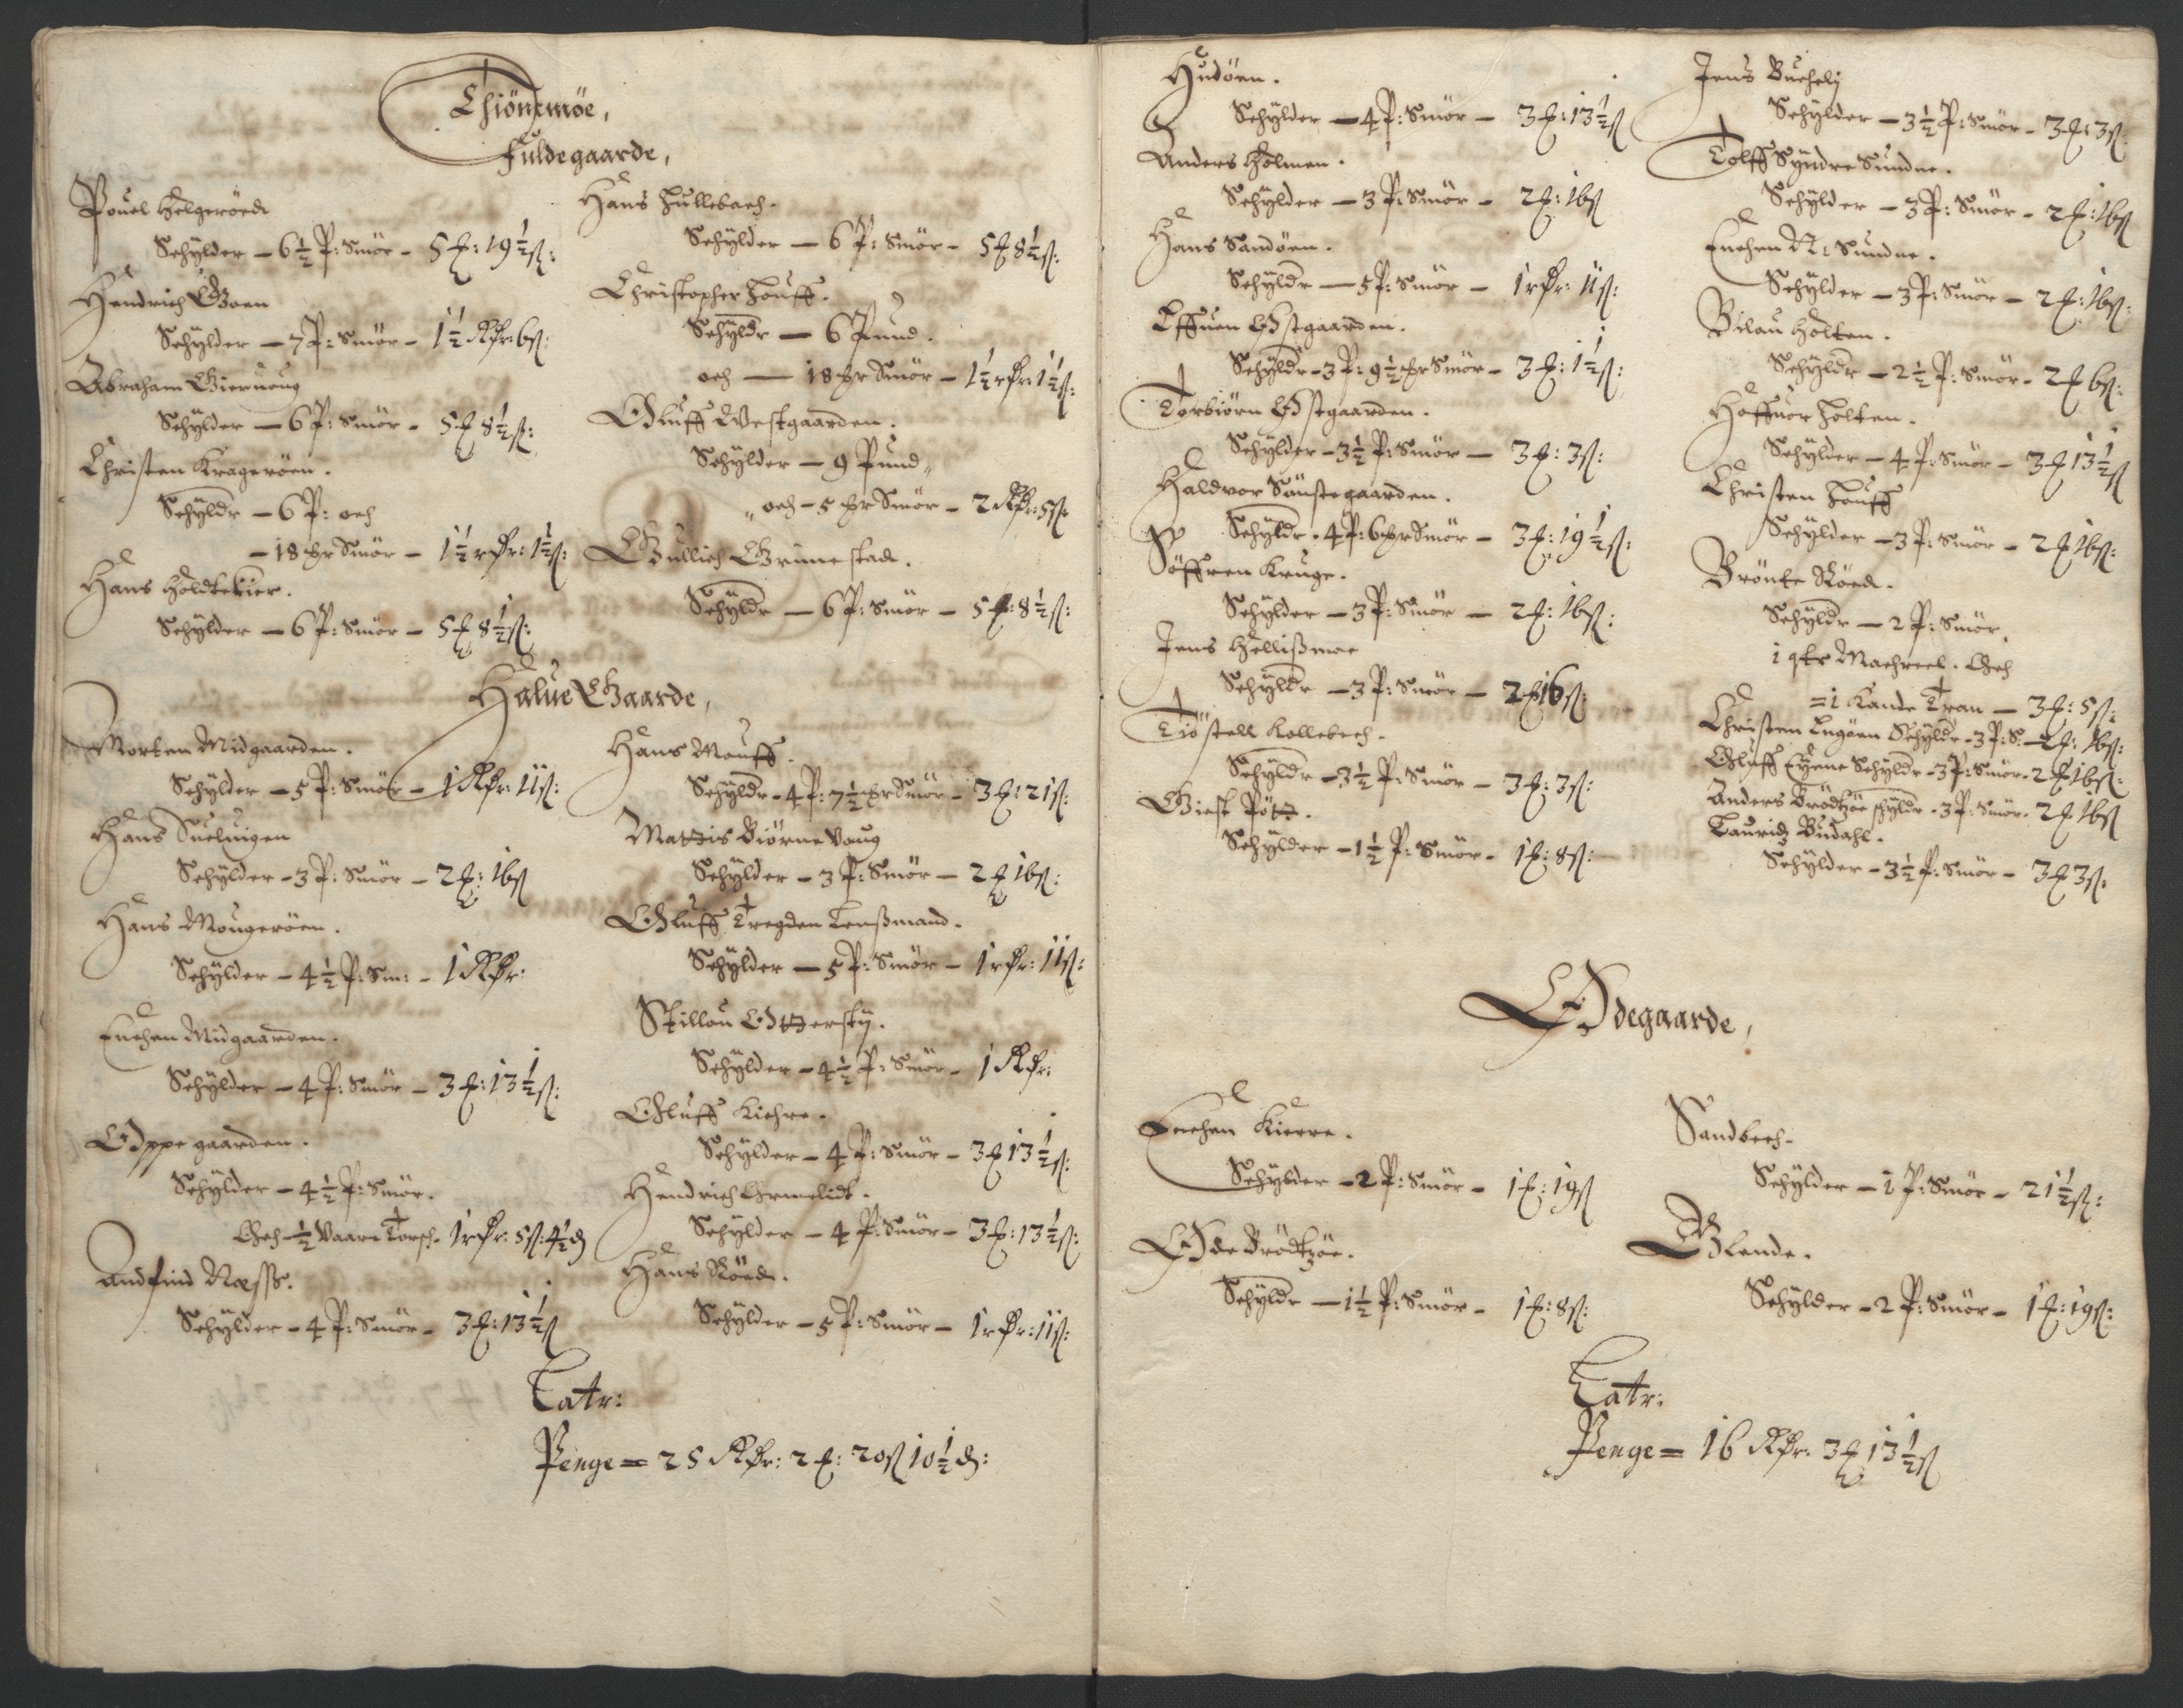 Chiönemöe,
Fuldegaarde,
Pouel Helgeröed
Schylder — 6½ P: Smör – 5 £: 19½ ß:
Hendrich Goen
Schylder — 7 P: Smör – 1½ Rdr: 6 ß:
Abraham Giernoug
Schylder — 6 P: Smör – 5 £ 8½ ß:
Christen Krageröen.
Schyldr — 6 P: och
— 18 mr Smör – 1½ rdr: 1½ ß:
Hans Holdtekier.
Schylder — 6 P: Smör – 5 £ 8½ ß:
Hans Hullebach.
Schylder — 6 P: Smör – 5 £ 8½ ß:
Christopher Houff.
Schyldr — 6 Pund.
och — 18 mr Smör – 1½ rdr: 1½ ß:
Oluff Westgaarden.
Schylder — 9 Pund
och – 5 mr Smör – 2 Rdr: 5 ß
Gullich Grimestad.
Schyldr — 6 P: Smör – 5 £: 8½ ß:
Halue Gaarde,
Morten Midgaarden.
Schylder – 5 P: Smör – 1 Rdr: 11 ß:
Hans Sueluigen
Schylder – 3 P: Smör – 2 £: 16 ß
Hans Mougeröen.
Schylder – 4½ P: Sm: – 1 Rdr:
Enchen Midgaarden.
Schylder – 4 P: Smör – 3 £: 13½ ß:
Oppegaarden.
Schylder – 4½ P: Smör.
Och ½ Vaare Torsch. 1 rdr: 5 ß: 4½ d
Andfind Næsß.
Schylder – 4 P: Smör – 3 £: 13½ ß
Hans Mouff.
Schyldr – 4 P: 7½ mr Smör – 3 £: 21 ß:
Mattis Biörnevoug
Schylder – 3 P: Smör – 2 £ 16 ß:
Oluff Tregden Lenßmand.
Schylder — 5 P: Smör – 1 rdr: 11 ß:
Stillou Ottersty.
Schylder – 4½ P: Smör – 1 Rdr:
Oluff Kiehre.
Schylder – 4 P: Smör – 3 £ 13½ ß:
Hendrich Ormelidt.
Schylder – 4 P: Smör – 3 £: 13½ ß:
Hans Röed.
Schylder – 5 P: Smör – 1 rdr: 11 ß:
Latr:
Penge = 25 Rdr: 2 £: 20 ß 10½ d:
Hudöen.
Schylder — 4 P: Smör – 3 £: 13½ ß
Anders Holmen.
Schylder — 3 P: Smör – 2 £: 16 ß
Hans Sandöen.
Schyldr — 5 P: Smör – 1 rdr: 11 ß:
Effuen Östgaarden.
Schyldr – 3 P: 9½ mr Smör – 3 £: 1½ ß:
Torbiörn Östgaarden.
Schylder – 3½ P: Smör — 3 £: 3 ß:
Haldvor Söustegaarden.
Schyldr – 4 P: 6 mr Smör – 3 £: 19½ ß:
Söffren Kruge.
Schylder – 3 P: Smör — 2 £: 16 ß:
Jens Hellißmoe
Schyldr — 3 P: Smör – 2 £ 16 ß:
Tiöstell Kollebech.
Schyldr – 3½ P: Smör – 3 £: 3 ß:
Giest Pött.
Schylder – 1½ P: Smör – 1 £: 8 ß:
Jens Buchely
Schylder – 3½ P: Smör – 3 £: 3 ß:
Tolff Syndre Sundne.
Schylder – 3 P: Smör – 2 £: 16 ß
Enchen N: Sundne.
Schylder – 3 P: Smör – 2 £: 16 ß:
Bilau Holten.
Schyldr – 2½ P: Smör – 2 £ 6 ß:
Hoffuor Holten.
Schylder – 4 P: Smör – 3 £ 13½ ß
Christen Houff
Schylder – 3 P: Smör – 2 £ 16 ß:
Brönte Röed.
Schyldr — 2 P: Smör,
1 qtr Machreel. Och
= 1 Kande Tran — 3 £: 5 ß:
Christen Lugöen Schyldr – 3 P: S: – 2 £: 16 ß:
Oluff Eyene Schyldr – 3 P: Smör – 2 £ 16 ß:
Anders Brödtzöe schyldr – 3 P: Smör – 2 £ 16 ß
Lauridz Budahl.
Schylder – 3½ P: Smör – 3 £ 3 ß:
Ödegaarde,
Enchen Kierre.
Schylder – 2 P: Smör – 1 £: 19 ß
Öde Brödtzöe.
Schyldr — 1½ P: Smör – 1 £: 8 ß:
Sandbech.
Schylder – 1 P: Smör – 21½ ß:
Glende.
Schylder – 2 P: Smör – 1 £: 19 ß:
Latr:
Penge = 16 Rdr: 3 £ 13½ ß